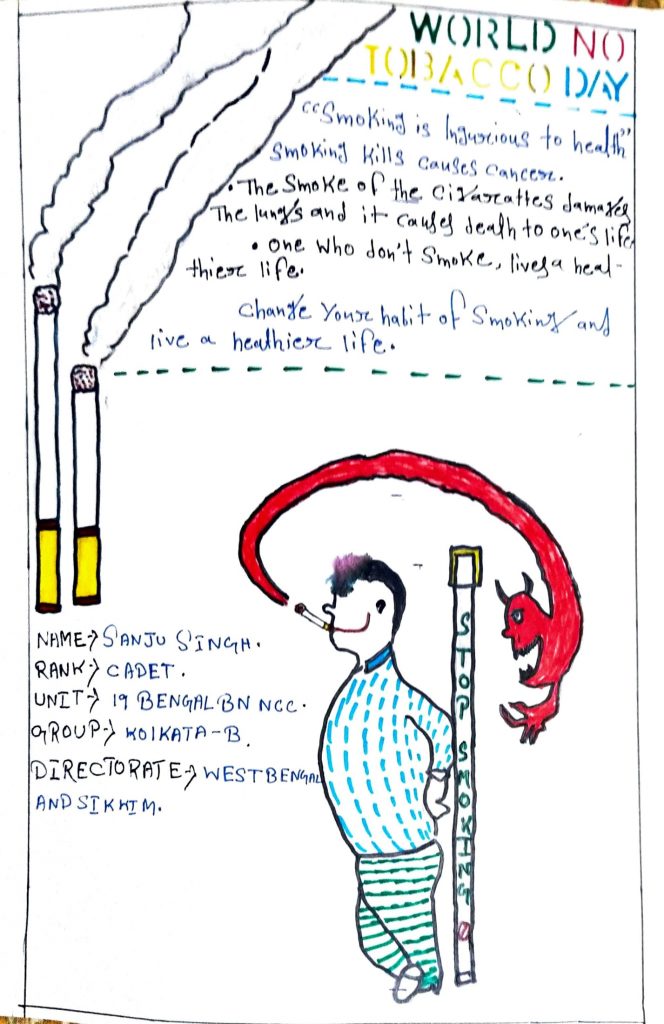 WORLD NO
TOBACCO DAY
"Smoking is Ingurious to health"
Smoking kills causes cancer.
• The Smoke of the cigarattes damages
The lungs and it causes death to one's life.
• One who don't smoke, lives a heal-
thier life.
Change your habit of smoking and
live a healthier life.
STOP SMOKING
NAME:→ SANJU SINGH.
RANK:→ CADET.
UNIT→ 19 BENGAL BN NCC.
GROUP→ KOLKATA-B.
DIRECTORATE→ WEST BENGAL
AND SIKKIM.